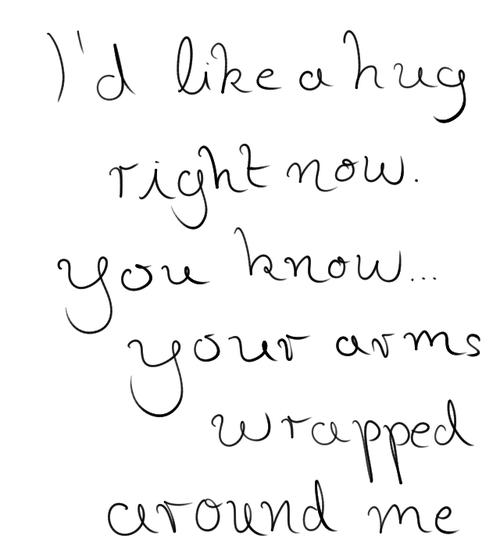 I'd like a hug
right now.
you know...
your arms
wrapped
around me